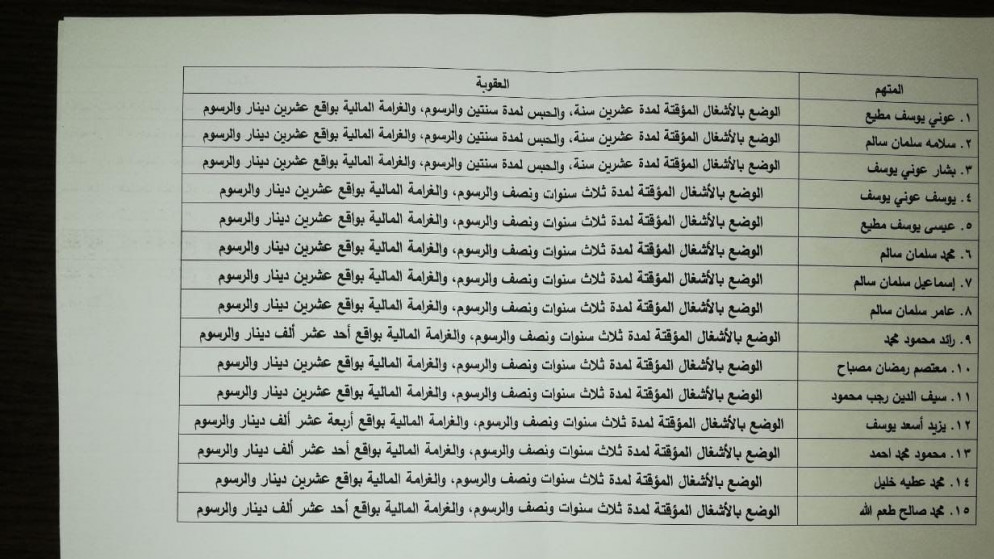 المتهم	العقوبة
١. عوني يوسف مطيع	الوضع بالأشغال المؤقتة لمدة عشرين سنة، والحبس لمدة سنتين والرسوم، والغرامة المالية بواقع عشرين دينار والرسوم
٢. سلامه سلمان سالم	الوضع بالأشغال المؤقتة لمدة عشرين سنة، والحبس لمدة سنتين والرسوم، والغرامة المالية بواقع عشرين دينار والرسوم
٣. بشار عوني يوسف	الوضع بالأشغال المؤقتة لمدة عشرين سنة، والحبس لمدة سنتين والرسوم، والغرامة المالية بواقع عشرين دينار والرسوم
٤. يوسف عوني يوسف	الوضع بالأشغال المؤقتة لمدة ثلاث سنوات ونصف والرسوم، والغرامة المالية بواقع عشرين دينار والرسوم
٥. عيسى يوسف مطيع	الوضع بالأشغال المؤقتة لمدة ثلاث سنوات ونصف والرسوم، والغرامة المالية بواقع عشرين دينار والرسوم
٦. محمد سلمان سالم	الوضع بالأشغال المؤقتة لمدة ثلاث سنوات ونصف والرسوم، والغرامة المالية بواقع عشرين دينار والرسوم
٧. إسماعيل سلمان سالم	الوضع بالأشغال المؤقتة لمدة ثلاث سنوات ونصف والرسوم، والغرامة المالية بواقع عشرين دينار والرسوم
٨. عامر سلمان سالم	الوضع بالأشغال المؤقتة لمدة ثلاث سنوات ونصف والرسوم، والغرامة المالية بواقع عشرين دينار والرسوم
٩. رائد محمود محمد	الوضع بالأشغال المؤقتة لمدة ثلاث سنوات ونصف والرسوم، والغرامة المالية بواقع أحد عشر ألف دينار والرسوم
١٠. معتصم رمضان مصباح	الوضع بالأشغال المؤقتة لمدة ثلاث سنوات ونصف والرسوم، والغرامة المالية بواقع عشرين دينار والرسوم
١١. سيف الدين رجب محمود	الوضع بالأشغال المؤقتة لمدة ثلاث سنوات ونصف والرسوم، والغرامة المالية بواقع عشرين دينار والرسوم
١٢. يزيد أسعد يوسف	الوضع بالأشغال المؤقتة لمدة ثلاث سنوات ونصف والرسوم، والغرامة المالية بواقع أربعة عشر ألف دينار والرسوم
١٣. محمود محمد احمد	الوضع بالأشغال المؤقتة لمدة ثلاث سنوات ونصف والرسوم، والغرامة المالية بواقع أحد عشر ألف دينار والرسوم
١٤. محمد عطيه خليل	الوضع بالأشغال المؤقتة لمدة ثلاث سنوات ونصف والرسوم، والغرامة المالية بواقع عشرين دينار والرسوم
١٥. محمد صالح طعم الله	الوضع بالأشغال المؤقتة لمدة ثلاث سنوات ونصف والرسوم، والغرامة المالية بواقع أحد عشر ألف دينار والرسوم